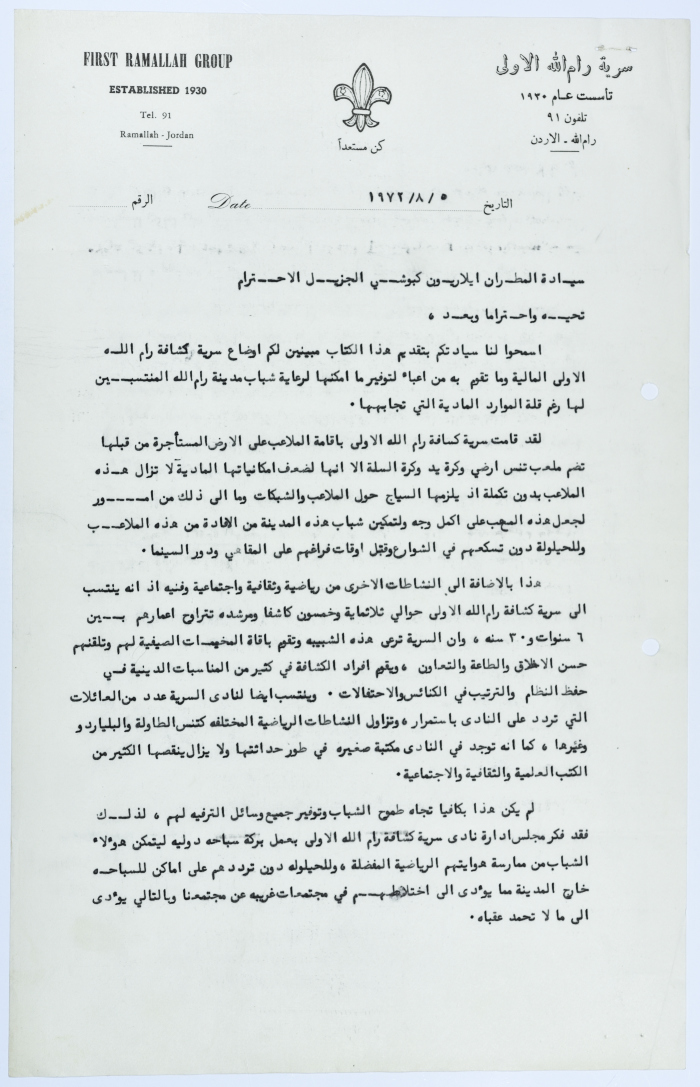 FIRST RAMALLAH GROUP
ESTABLISHED 1930
Tel. 91
Ramallah - Jordan
كن مستعداً
سرية رام الله الاولى
تأسست عـام ١٩٣٠
تلفون ٩١
رام الله ـ الاردن
التاريخ ١٩٧٢/٨/٥ Date الرقم
سيـادة المطـران ايلاريـون كبوشـي الجزيــل الاحـترام
تحيــه واحتراما وبعـد ،
اسمحوا لنا سيادتكم بتقديم هذا الكتاب مبينين لكم اوضاع سرية كشافة رام اللـه
الاولى المالية وما تقوم به من اعباء لتوفير ما امكنها لرعاية شباب مدينة رام الله المنتسبـين
لها رغم قلة الموارد المادية التي تجابهها ٠
لقد قامت سرية كسافة رام الله الاولى باقامة الملاعب على الارض المستأجرة من قبلها
تضم ملعب تنس ارضي وكرة يد وكرة السلة الا انها لضعف امكانياتها المادية لا تزال هـذه
الملاعب بدون تكملة اذ يلزمها السياج حول الملاعب والشبكات وما الى ذلك من امـــور
لجعل هذه على اكمل وجه ولتمكين شباب هذه المدينة من الافادة من هذه الملاعـب
وللحيلولة دون تسكعهم في الشوارع وقتل اوقات فراغهم على المقاهي ودور السينما ٠
هذا بالاضافة الى النشاطات الاخرى من رياضية وثقافية واجتماعية وفنيه اذ انه ينتسب
الى سرية كشافة رام الله الاولى حوالي ثلاثماية وخمسون كاشفا ومرشده تتراوح اعمارهم بـين
٦ سنوات و ٣٠ سنه ، وان السرية ترعى هذه الشبيبه وتقيم باقاة المخيمات الصيفية لهم وتلقنهم
حسن الاخلاق والطاعة والتعاون ، ويقيم افراد الكشافة في كثير من المناسبات الدينية فـي
حفظ النظام والترتيب في الكنائس والاحتفالات ٠ وينتسب ايضا لنادى السرية عدد من العائلات
التي تردد على النادى باستمرار ، وتزاول النشاطات الرياضية المختلفه كتنس الطاولة والبلياردو
وغيرها ، كما انه توجد في النادى مكتبة صغيره في طور حداثتها ولا يزال ينقصها الكثير من
الكتب العلمية والثقافية والاجتماعية ٠
لم يكن هذا بكافيا تجاه طموح الشباب وتوفير جميع وسائل الترفيه لهم ، لذلــك
فقد فكر مجلس ادارة نادى سرية كشافة رام الله الاولى بعمل بركة سباحه دوليه ليتمكن هؤلاء
الشباب من ممارسة هوايتهم الرياضية المفضلة ، وللحيلوله دون ترددهم على اماكن للسباحـه
خارج المدينة مما يؤدى الى اختلاطهــم في مجتمعات غريبه عن مجتمعنا وبالتالي يؤدى
الى ما لا تحمد عقباه ٠